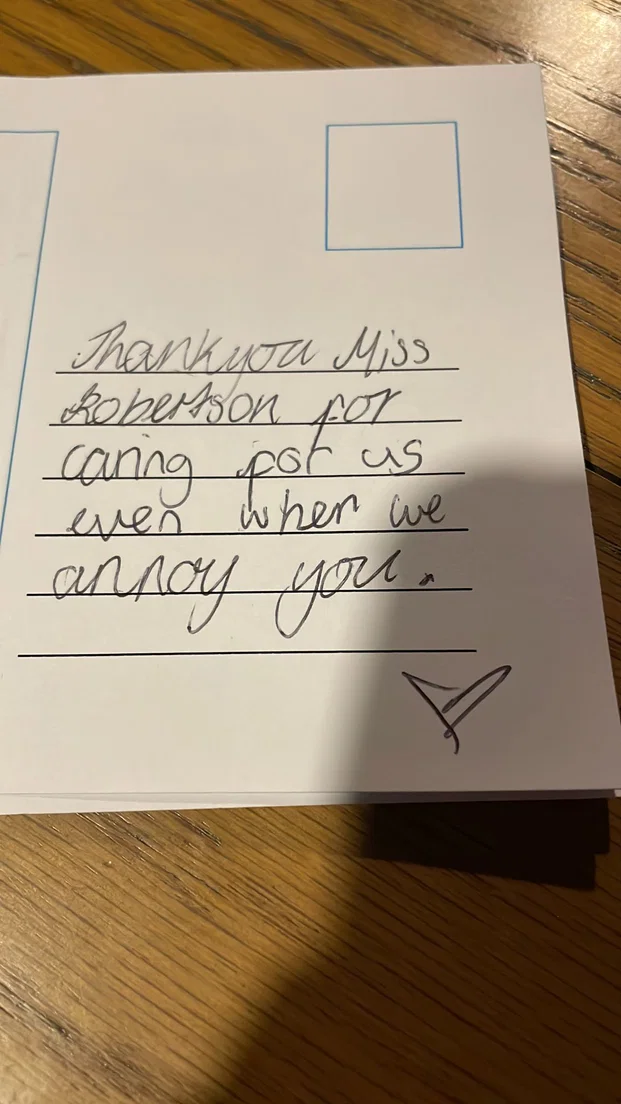 Thankyou Miss
Robertson for
caring for us
even when we
annoy you.